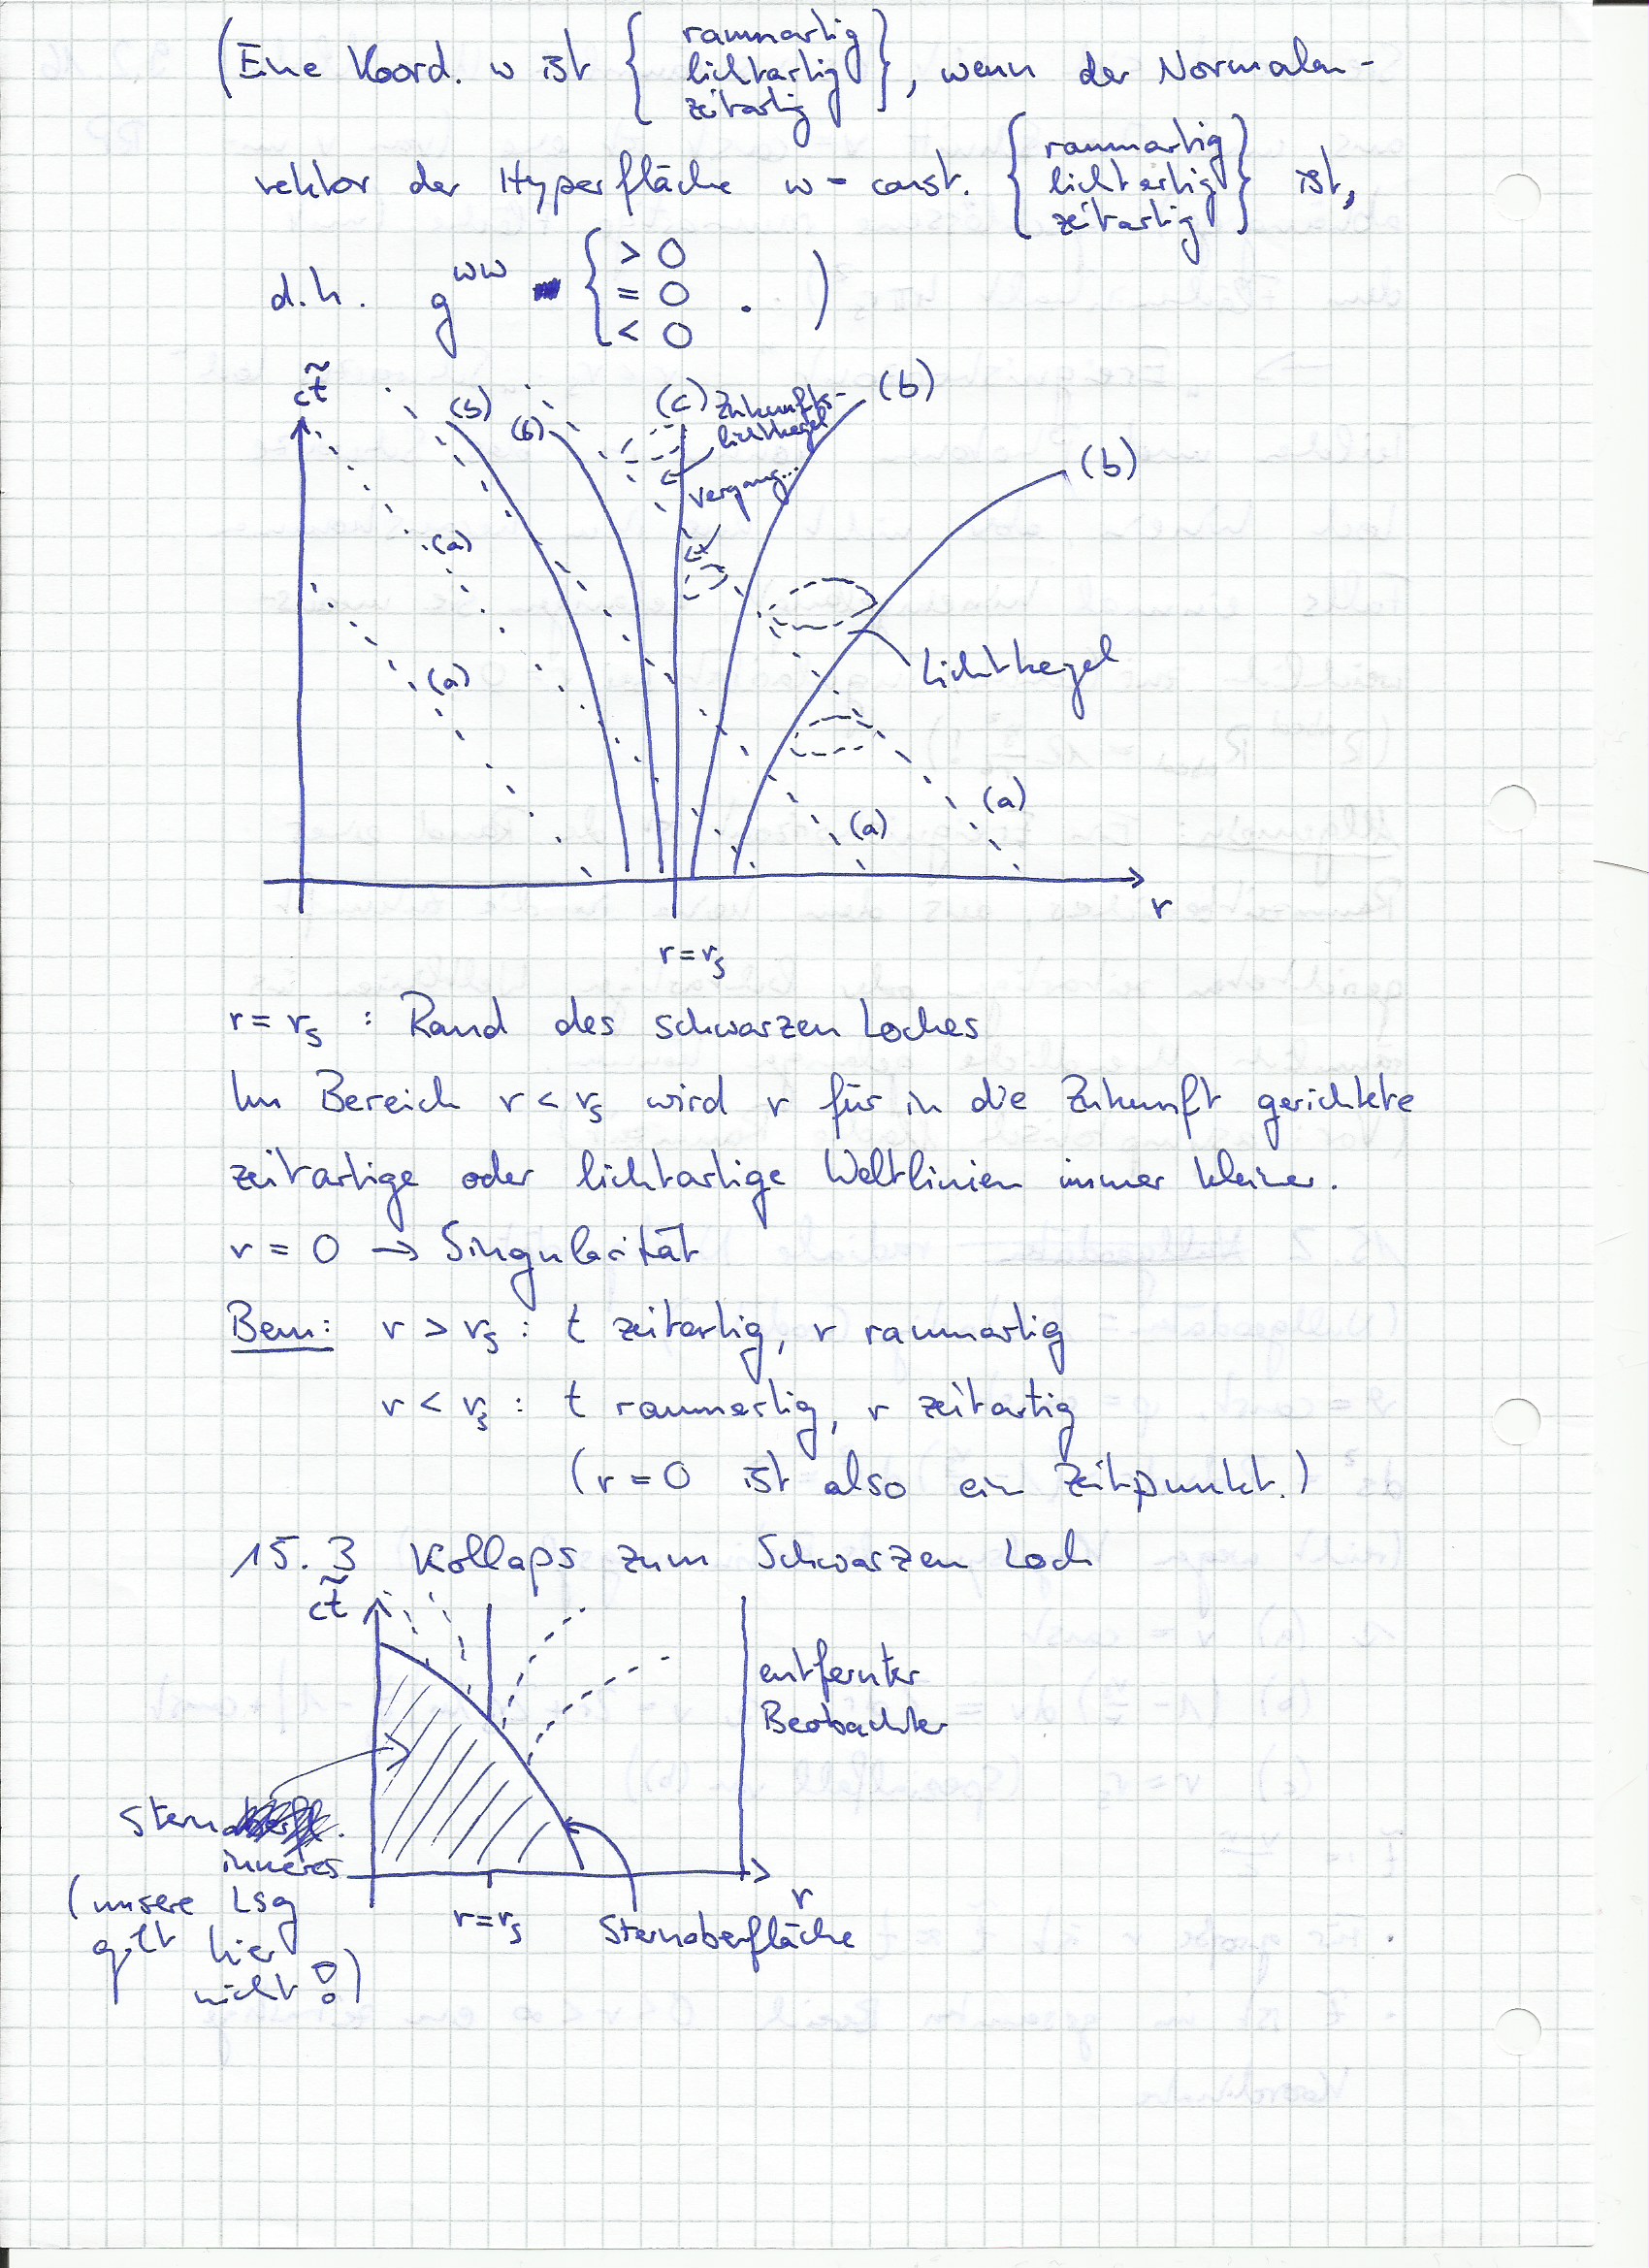 (Eine Koord. w ist { raumartig lichtartig zeitartig }, wenn der Normalen-
vektor der Hyperfläche w = const. { raumartig lichtartig zeitartig } ist,
d.h. g^{ww} { > 0 = 0 < 0 . )
ct̃
(b)
(b)
(c)
Zukunfts-
lichtkegel
(b)
(b)
Vergang...
(a)
(a)
Lichtkegel
(a)
(a)
r
r = r_s
r = r_s : Rand des schwarzen Loches
Im Bereich r < r_s wird r für in die Zukunft gerichtete
zeitartige oder lichtartige Weltlinien immer kleiner.
r = 0 → Singularität
Bem: r > r_s : t zeitartig, r raumartig
r < r_s : t raumartig, r zeitartig
(r = 0 ist also ein Zeitpunkt.)
15.3 Kollaps zum Schwarzen Loch
ct̃
entfernter
Beobachter
Stern
inneres
(unsere Lsg
gilt hier
nicht!)
r
r = r_s
Sternoberfläche